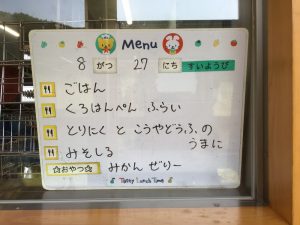 Menu
8 がつ 27 にち すいようび
ごはん
くろはんぺん ふらい
とりにく と こうやどうふ の
うまに
みそしる
☆おやつ☆ みかん ぜりー
Tasty Lunch Time